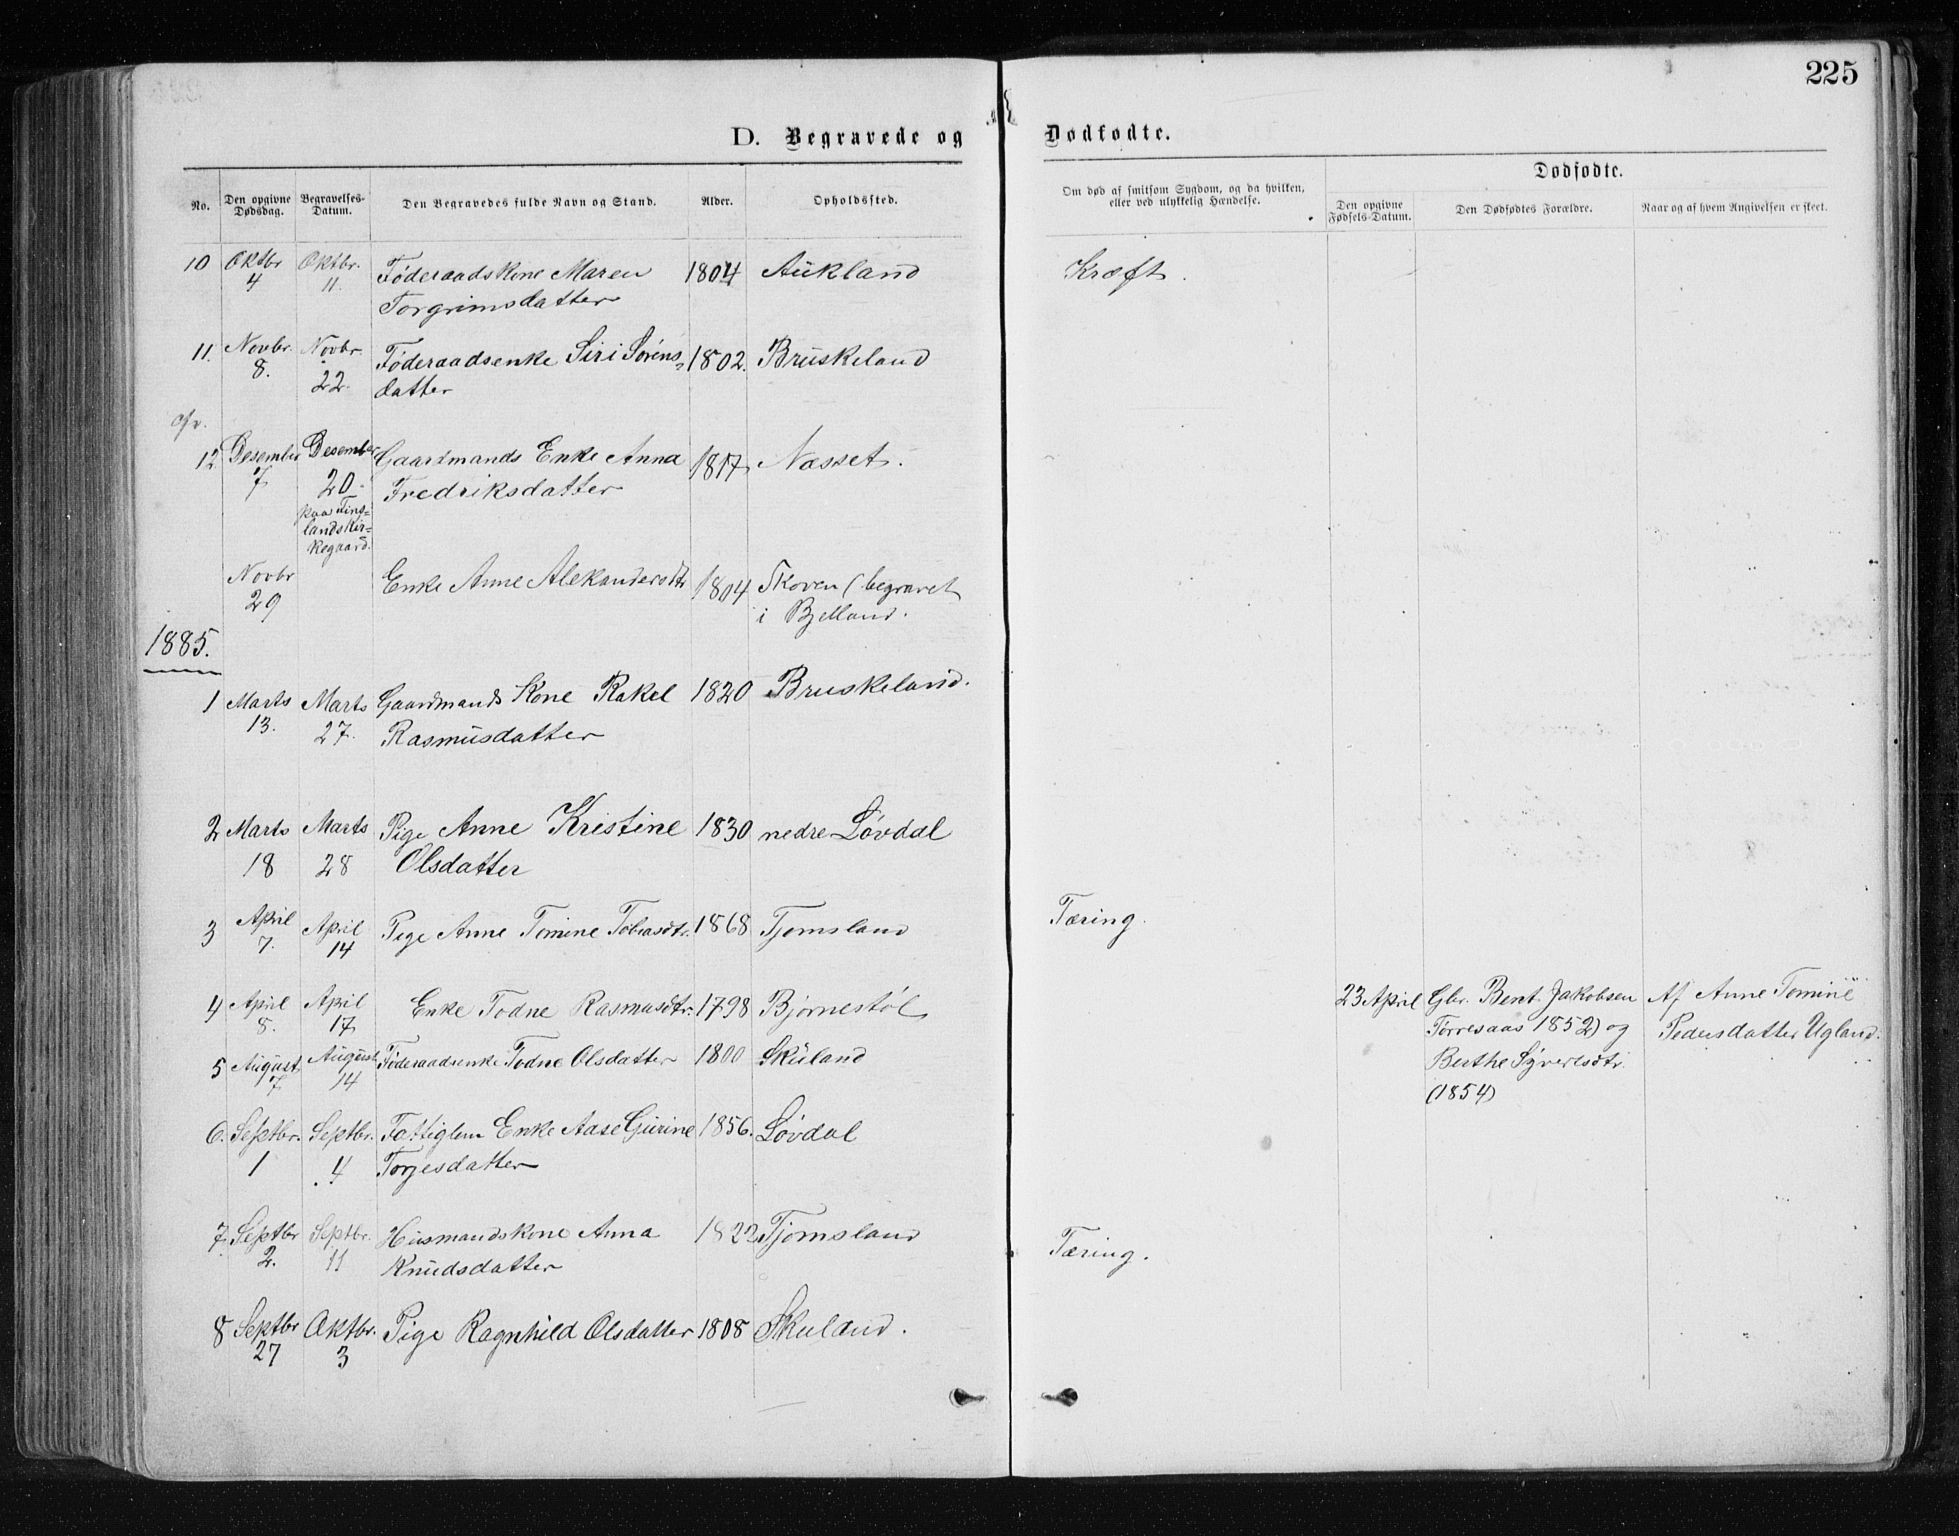 225
D. Begravede og Dødfødte.
No.
Den opgivne Dødsdag.
Begravelses-Datum.
Den Begravedes fulde Navn og Stand.
Alder.
Opholdssted.
Om død af smitsom Sygdom, og da hvilken,
eller ved ulykkelig Hændelse.
Dødfødte.
Den opgivne Fødsels-Datum.
Den Dødfødtes Forældre.
Naar og af hvem Angivelsen er skeet.
10 Oktbr Oktbr. Føderaadskone Maren 1804 Aukland Kræft.
4 11. Torgrimsdatter
11. Novbr. Novbr. Føderaadsenke Siri Sørens= 1802. Bruskeland
8. 22. datter
12 Desember Desember Gaardmands Enke Anna 1817 Næsset.
7 20. Fredriksdatter
paa Fins=
lands Kir=
kegaard.
Novbr Enke Anne Aleksandersdtr 1804 Skoven (begravet
29 i Bjelland.
1885.
1 Marts Marts Gaardmands Kone Rakel 1820 Bruskeland.
13. 27. Rasmusdatter
2 Marts Marts Pige Anne Kristine 1830 nedre Løvdal
18 28 Olsdatter
3 April April Pige Anne Tomine Tobiasdtr. 1868 Tjomsland Tæring.
7. 14
4 April April Enke Todne Rasmusdtr. 1798 Bjørnestøl
8. 17
23 April Gbr. Bent Jakobsen Af Anne Tomine
Tørresaas 1852) og Pedersdatter Ugland.
Berthe Syvertsdtr.
(1854)
5 August August Føderaadsenke Todne Olsdatter 1800 Skuland
7 14
6. Septbr. Septbr. Fattiglem Enke Aase Gurine 1856. Løvdal
1 4 Torjesdatter
7 Septbr Septbr. Husmandskone Anna 1822 Tjomsland Tæring.
2. 11 Knudsdatter
8 Septbr Oktbr. Pige Ragnhild Olsdatter 1808 Skuland.
27 3